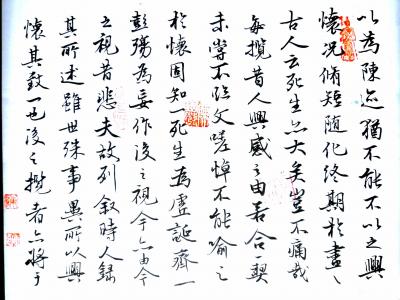 以為陳迹猶不能不以之興
懷況脩短随化終期於盡
古人云死生亦大矣豈不痛哉
每攬昔人興感之由若合一契
未嘗不臨文嗟悼不能喻之
於懷固知一死生為虛誕齊一
彭殤為妄作後之視今亦由今
之視昔悲夫故列叙時人錄
其所述雖世殊事異所以興
懷其致一也後之攬者亦將